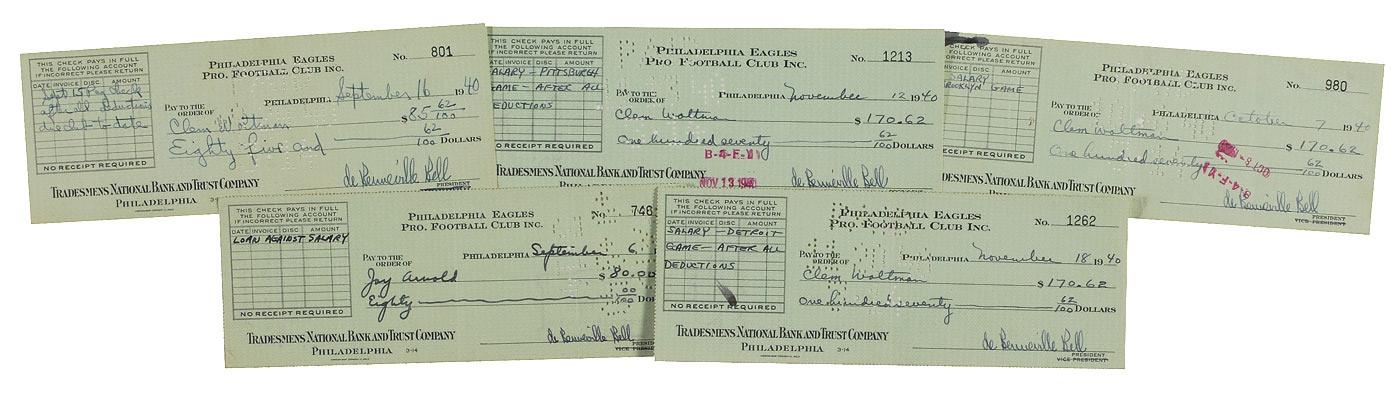 THIS CHECK PAYS IN FULL
THE FOLLOWING ACCOUNT
IF INCORRECT PLEASE RETURN
DATE INVOICE DISC. AMOUNT
after all Deductions
due club to date
NO RECEIPT REQUIRED
PHILADELPHIA EAGLES
PRO. FOOTBALL CLUB INC.
No. 801
PHILADELPHIA, September 16 1940
PAY TO THE
ORDER OF Clem Woltman $85 62/100
Eighty five and 62/100 DOLLARS
TRADESMENS NATIONAL BANK AND TRUST COMPANY
PHILADELPHIA
de Benneville Bell
PRESIDENT
THIS CHECK PAYS IN FULL
THE FOLLOWING ACCOUNT
IF INCORRECT PLEASE RETURN
DATE INVOICE DISC. AMOUNT
SALARY - PITTSBURGH
GAME - AFTER ALL
DEDUCTIONS
NO RECEIPT REQUIRED
PHILADELPHIA EAGLES
PRO. FOOTBALL CLUB INC.
No. 1213
PHILADELPHIA, November 12 1940
PAY TO THE
ORDER OF Clem Woltman $170.62
One hundred seventy 62/100 DOLLARS
NOV 13 1940
TRADESMENS NATIONAL BANK AND TRUST COMPANY
de Benneville Bell
PRESIDENT
THIS CHECK PAYS IN FULL
THE FOLLOWING ACCOUNT
IF INCORRECT PLEASE RETURN
DATE INVOICE DISC. AMOUNT
SALARY
BROOKLYN GAME
NO RECEIPT REQUIRED
PHILADELPHIA EAGLES
PRO. FOOTBALL CLUB INC.
No. 980
PHILADELPHIA, October 7 1940
PAY TO THE
ORDER OF Clem Woltman $170.62
One hundred seventy 62/100 DOLLARS
TRADESMENS NATIONAL BANK AND TRUST COMPANY
de Benneville Bell
PRESIDENT
VICE-PRESIDENT
THIS CHECK PAYS IN FULL
THE FOLLOWING ACCOUNT
IF INCORRECT PLEASE RETURN
DATE INVOICE DISC. AMOUNT
LOAN AGAINST SALARY
NO RECEIPT REQUIRED
PHILADELPHIA EAGLES
PRO. FOOTBALL CLUB INC.
No. 748
PHILADELPHIA September 6, 
PAY TO THE
ORDER OF Jay Arnold $80.00
Eighty 00/100 DOL
TRADESMENS NATIONAL BANK AND TRUST COMPANY
PHILADELPHIA 3-14
de Benneville Bell
PRESIDENT
VICE-PRESIDENT
THIS CHECK PAYS IN FULL
THE FOLLOWING ACCOUNT
IF INCORRECT PLEASE RETURN
DATE INVOICE DISC. AMOUNT
SALARY - DETROIT
GAME - AFTER ALL
DEDUCTIONS
NO RECEIPT REQUIRED
PHILADELPHIA EAGLES
PRO. FOOTBALL CLUB INC.
No. 1262
PHILADELPHIA, November 18 1940
PAY TO THE
ORDER OF Clem Woltman $170.62
One hundred seventy 62/100 DOLLARS
TRADESMENS NATIONAL BANK AND TRUST COMPANY
PHILADELPHIA 3-14
de Benneville Bell
PRESIDENT
VICE-PRESIDENT